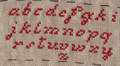 a b c d e f g h i
j k l m n o p q
r s t u v w x y
z